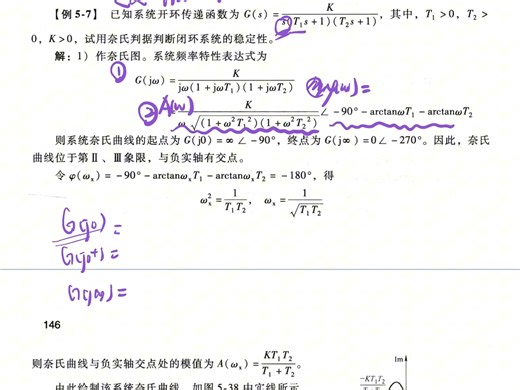 【例 5-7】 已知系统开环传递函数为 G(s) = K / s(T₁s+1)(T₂s+1), 其中, T₁>0, T₂>
0, K>0, 试用奈氏判据判断闭环系统的稳定性。
解: 1) 作奈氏图。系统频率特性表达式为
①
G(jω) = K / jω(1+jωT₁)(1+jωT₂)
② A(ω) = K / ω√(1+ω²T₁²)(1+ω²T₂²) ∠ -90° - arctanωT₁ - arctanωT₂
则系统奈氏曲线的起点为 G(j0) = ∞∠-90°, 终点为 G(j∞) = 0∠-270°。因此, 奈氏
曲线位于第Ⅱ、Ⅲ象限, 与负实轴有交点。
令 φ(ωₓ) = -90° - arctanωₓT₁ - arctanωₓT₂ = -180°, 得
ωₓ² = 1 / T₁T₂, ωₓ = 1 / √T₁T₂
G(j0) =
G(j0⁺) =
G(j∞) =
146
则奈氏曲线与负实轴交点处的模值为 A(ωₓ) = KT₁T₂ / T₁+T₂。
Im
-KT₁T₂
由此绘制该系统奈氏曲线, 如图 5-38 中实线所示